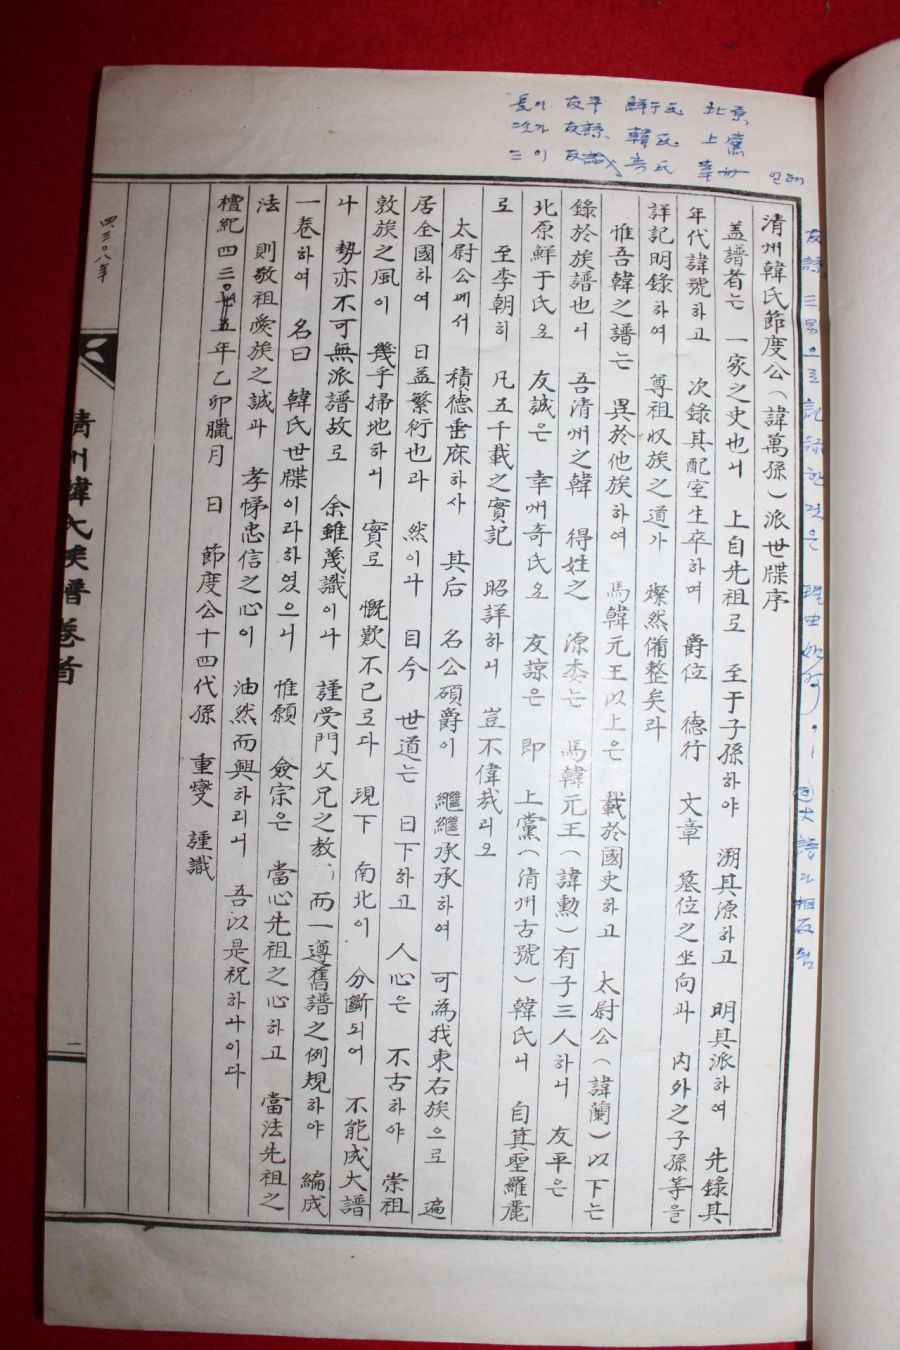 淸州韓氏節度公(諱萬孫)派世牒序
盖譜者는 一家之史也니 上自先祖로 至于子孫하야 溯其源하고 明其派하여 先錄其
年代諱號하고 次錄其配室生卒하며 爵位 德行 文章 墓位之坐向과 內外之子孫等을
詳記明錄하여 尊祖收族之道가 燦然備整矣라
惟吾韓之譜는 異於他族하여 馬韓元王以上은 載於國史하고 太尉公(諱蘭)以下는
錄於族譜也니 吾淸州之韓 得姓之 源委는 馬韓元王(諱勳)有子三人하니 友平은
北原鮮于氏오 友誠은 幸州奇氏오 友諒은 即 上黨(淸州古號)韓氏니 自箕聖羅麗
로 至李朝히 凡五千載之實記 昭詳하니 豈不偉哉리오
太尉公께서 積德垂庥하사 其后 名公碩爵이 繼繼承承하여 可為我東右族으로 遍
居全國하여 日益繁衍也라 然이나 目今 世道는 日下하고 人心은 不古하야 崇祖
敦族之風이 幾乎掃地하니 實로 慨歎不已로다 現下 南北이 分斷되어 不能成大譜
나 勢亦不可無派譜故로 余雖蔑識이나 謹受門父兄之教 而一遵舊譜之例規하야 編成
一卷하여 名曰 韓氏世牒이라하였으니 惟願 僉宗은 當心先祖之心하고 當法先祖之
法 則敬祖愛族之誠과 孝悌忠信之心이 油然而興하리니 吾以是祝하나이다
檀紀四三〇五年乙卯臘月 日 節度公十四代孫 重燮 謹識
四三〇八年
淸州韓氏族譜卷首
一
友平 鮮于氏 北原
友諒 韓氏 上黨
友誠 奇氏 幸州